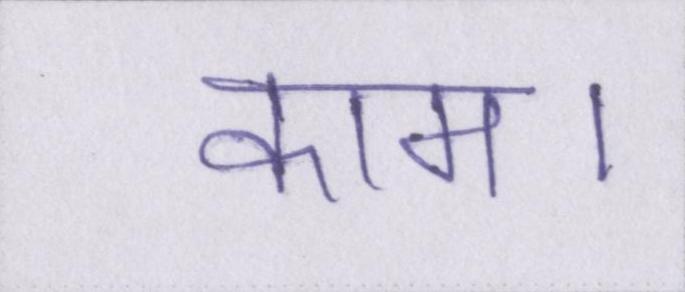 काम।